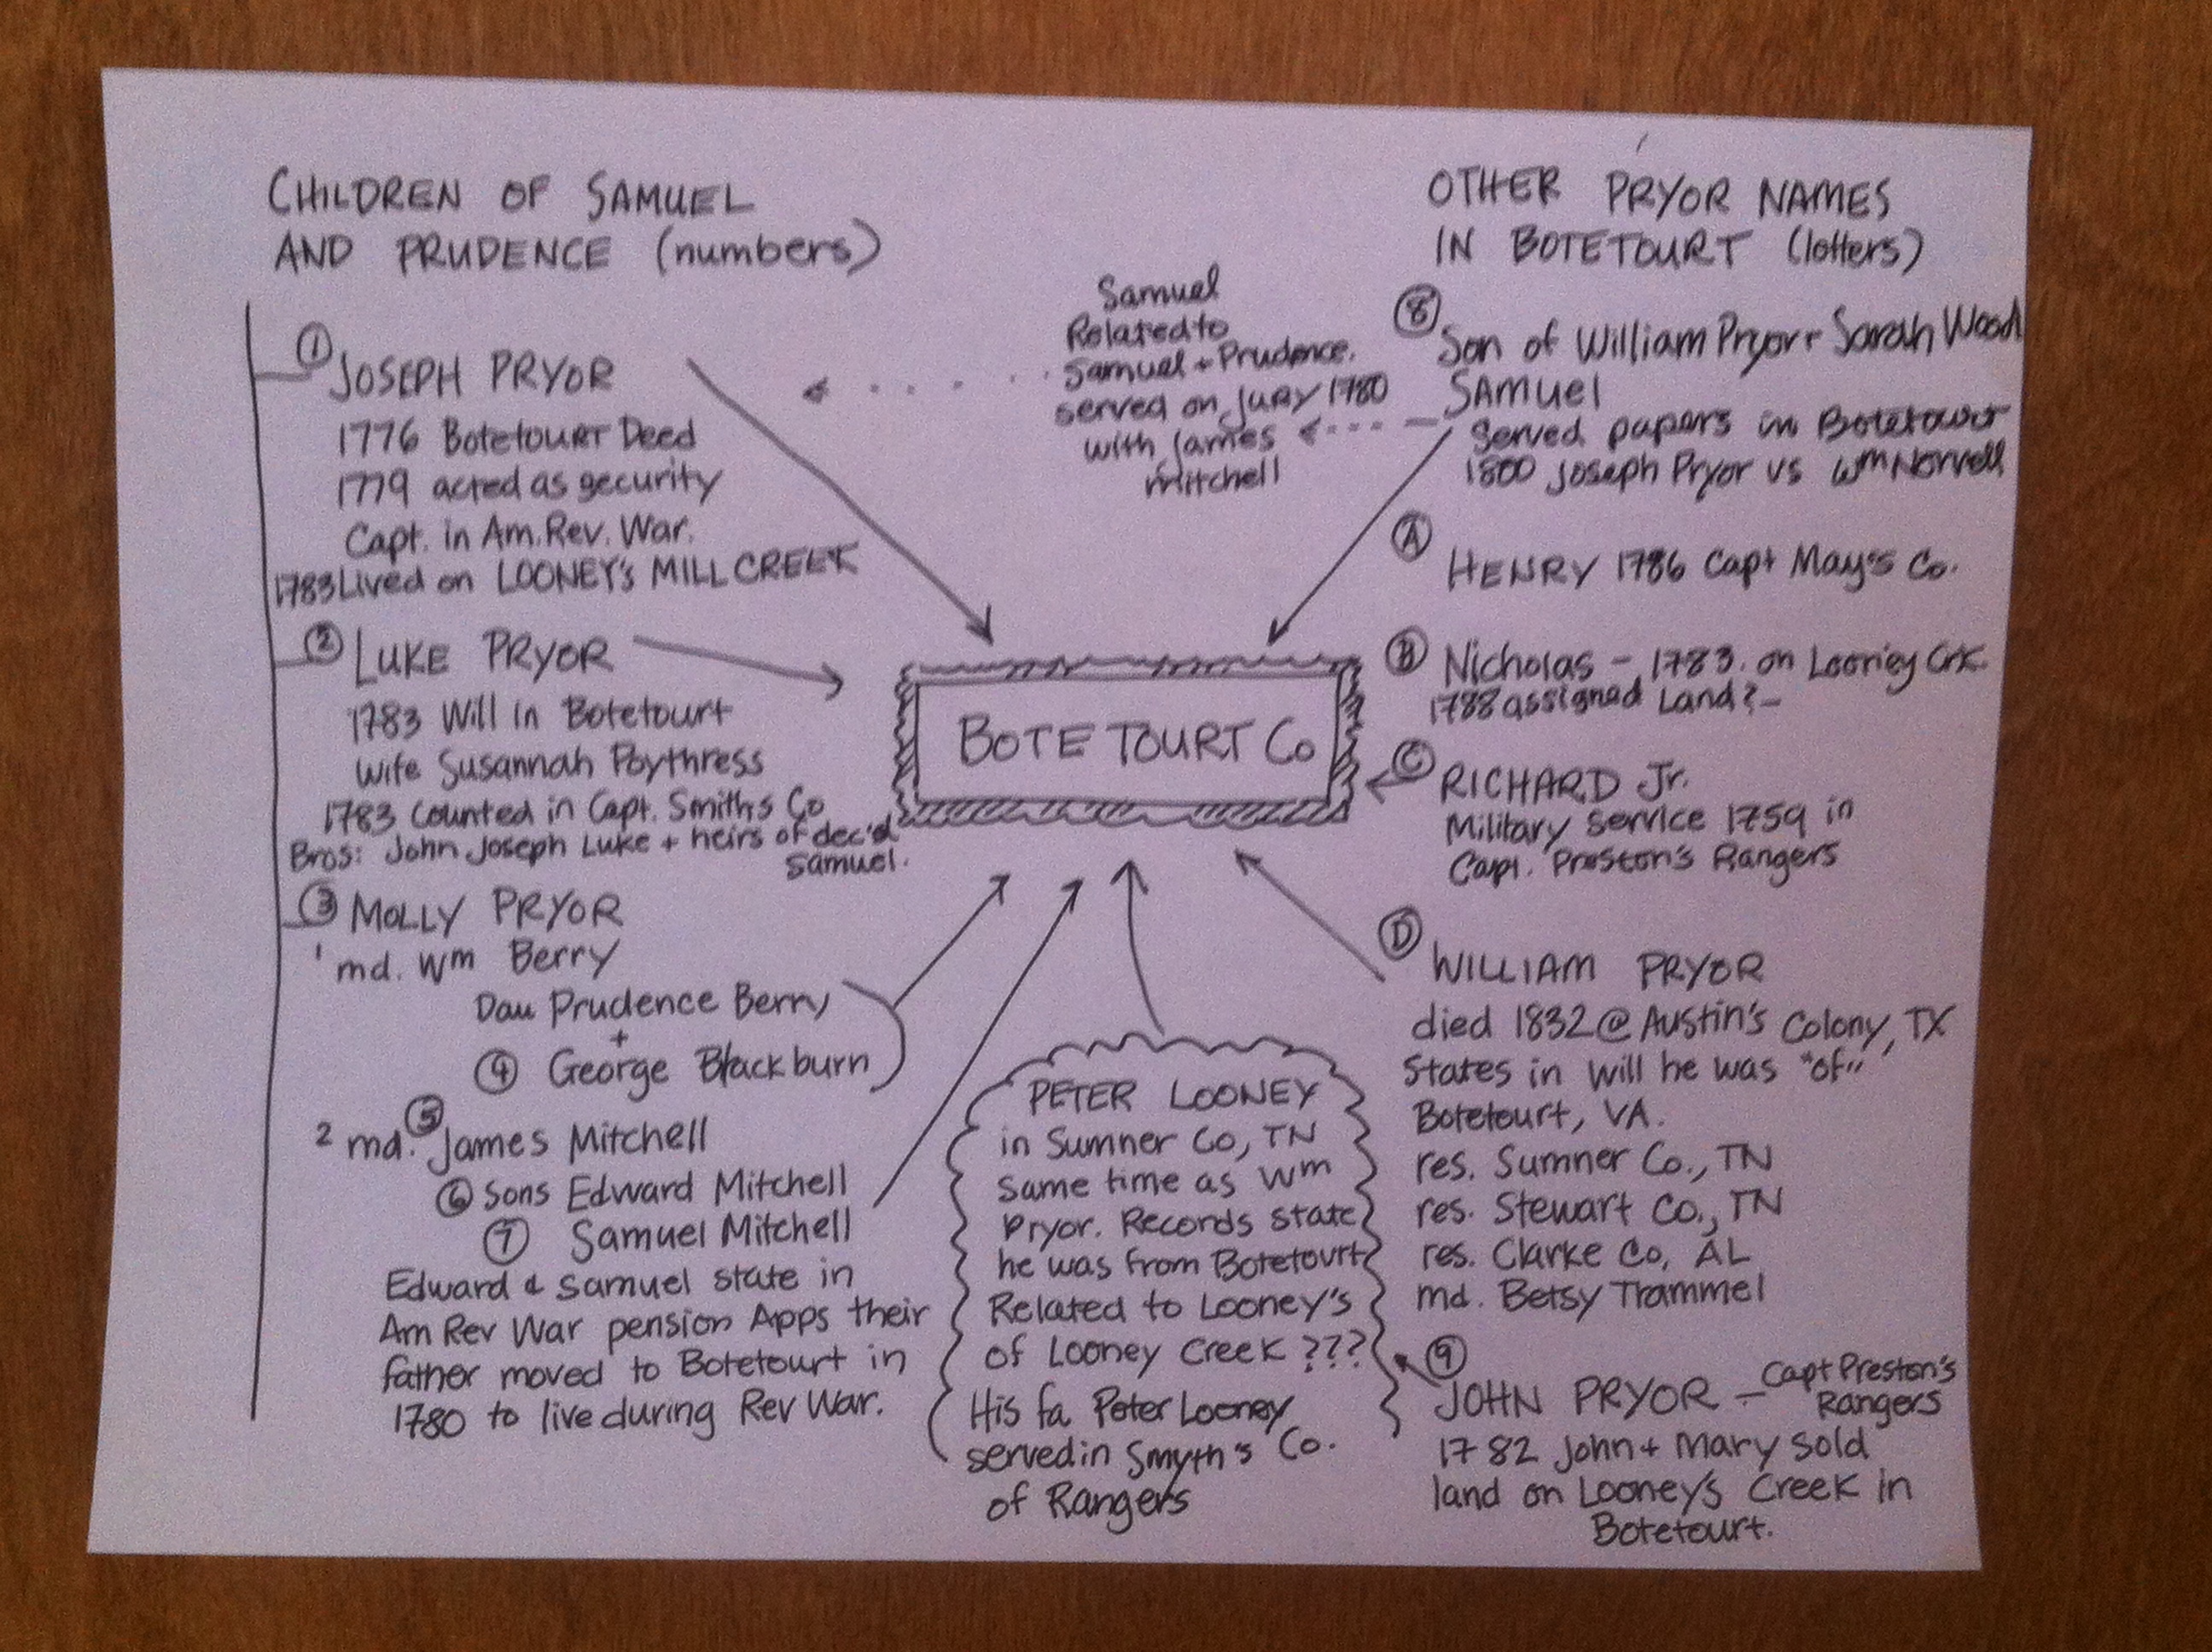 CHILDREN OF SAMUEL
AND PRUDENCE (numbers)
① JOSEPH PRYOR
1776 BotetOURT Deed
1779 acted as security
Capt. in Am. Rev. War.
1783 Lived on LOONEY'S MILL CREEK
② LUKE PRYOR
1783 Will in Botetourt
Wife Susannah Poythress
1783 Counted in Capt. Smith's Co
Bros: John Joseph Luke + heirs of dec'd
Samuel.
③ MOLLY PRYOR
1 md. Wm Berry
Dau Prudence Berry
+
④ George Blackburn
2 md. ⑤ James Mitchell
⑥ Sons Edward Mitchell
⑦ Samuel Mitchell
Edward & Samuel state in
Am Rev War pension Apps their
father moved to Botetourt in
1780 to live during Rev War.
Samuel
Related to
Samuel + Prudence.
served on jury 1780
with James
Mitchell
BOTETOURT Co
PETER LOONEY
in Sumner Co, TN
Same time as Wm
Pryor. Records state
he was from Botetourt
Related to Looney's
of Looney Creek ???
His fa Peter Looney
served in Smyth's Co.
of Rangers
OTHER PRYOR NAMES
IN BOTETOURT (letters)
⑧ Son of William Pryor + Sarah Wood
SAMUEl
Served papers in Botetourt
1800 Joseph Pryor vs Wm Norvell
Ⓐ HENRY 1786 Capt May's Co.
Ⓑ Nicholas - 1783. on Looney Crk.
1788 assigned Land? -
Ⓒ RICHARD Jr.
Military Service 1759 in
Capt. Preston's Rangers
Ⓓ WILLIAM PRYOR
died 1832 @ Austin's Colony, TX
States in will he was "of"
Botetourt, VA.
res. Sumner Co., TN
res. Stewart Co., TN
res. Clarke Co, AL
md. Betsy Trammel
⑨ JOHN PRYOR - Capt Preston's
Rangers
1782 John + Mary sold
land on Looney's Creek in
Botetourt.